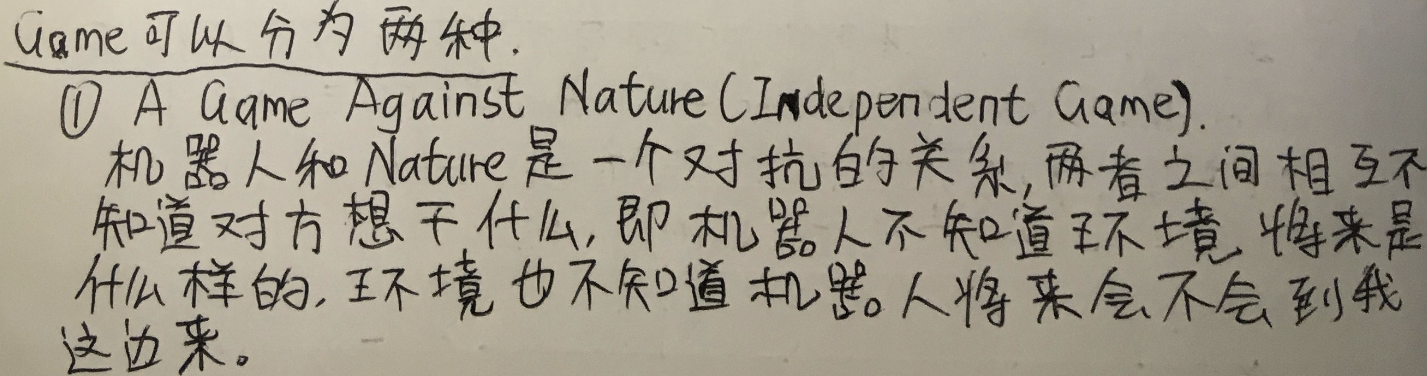 Game可以分为两种.
① A Game Against Nature(Independent Game).
机器人和Nature是一个对抗的关系,两者之间相互不
知道对方想干什么,即机器人不知道环境将来是
什么样的,环境也不知道机器人将来会不会到我
这边来。